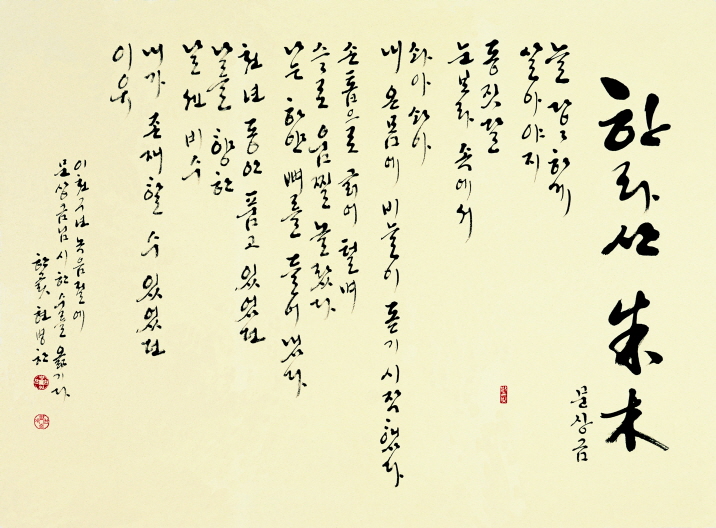 한라산 朱木
문상금
늘 당당하게
살아야지
동짓달
눈보라 속에서
솨아 솨아
내 온몸에 비늘이 돋기 시작했다
손톱으로 긁어 털며
스스로 움찔 놀랐다
나는 하얀 뼈를 들어냈다
천년 동안 품고 있었던
날을 향한
날 선 비수
내가 존재할 수 있었던
이유
이천구년 녹음절에
문상금님 시 한 수를 옮기다
한곬 현병찬